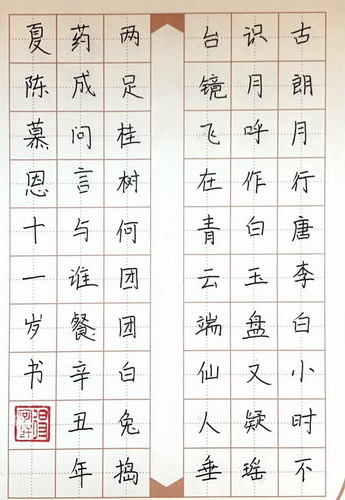 古朗月行唐李白小时不
识月呼作白玉盘又疑瑶
台镜飞在青云端仙人垂
两足桂树何团团白兔捣
药成问言与谁餐辛丑年
夏陈慕恩十一岁书